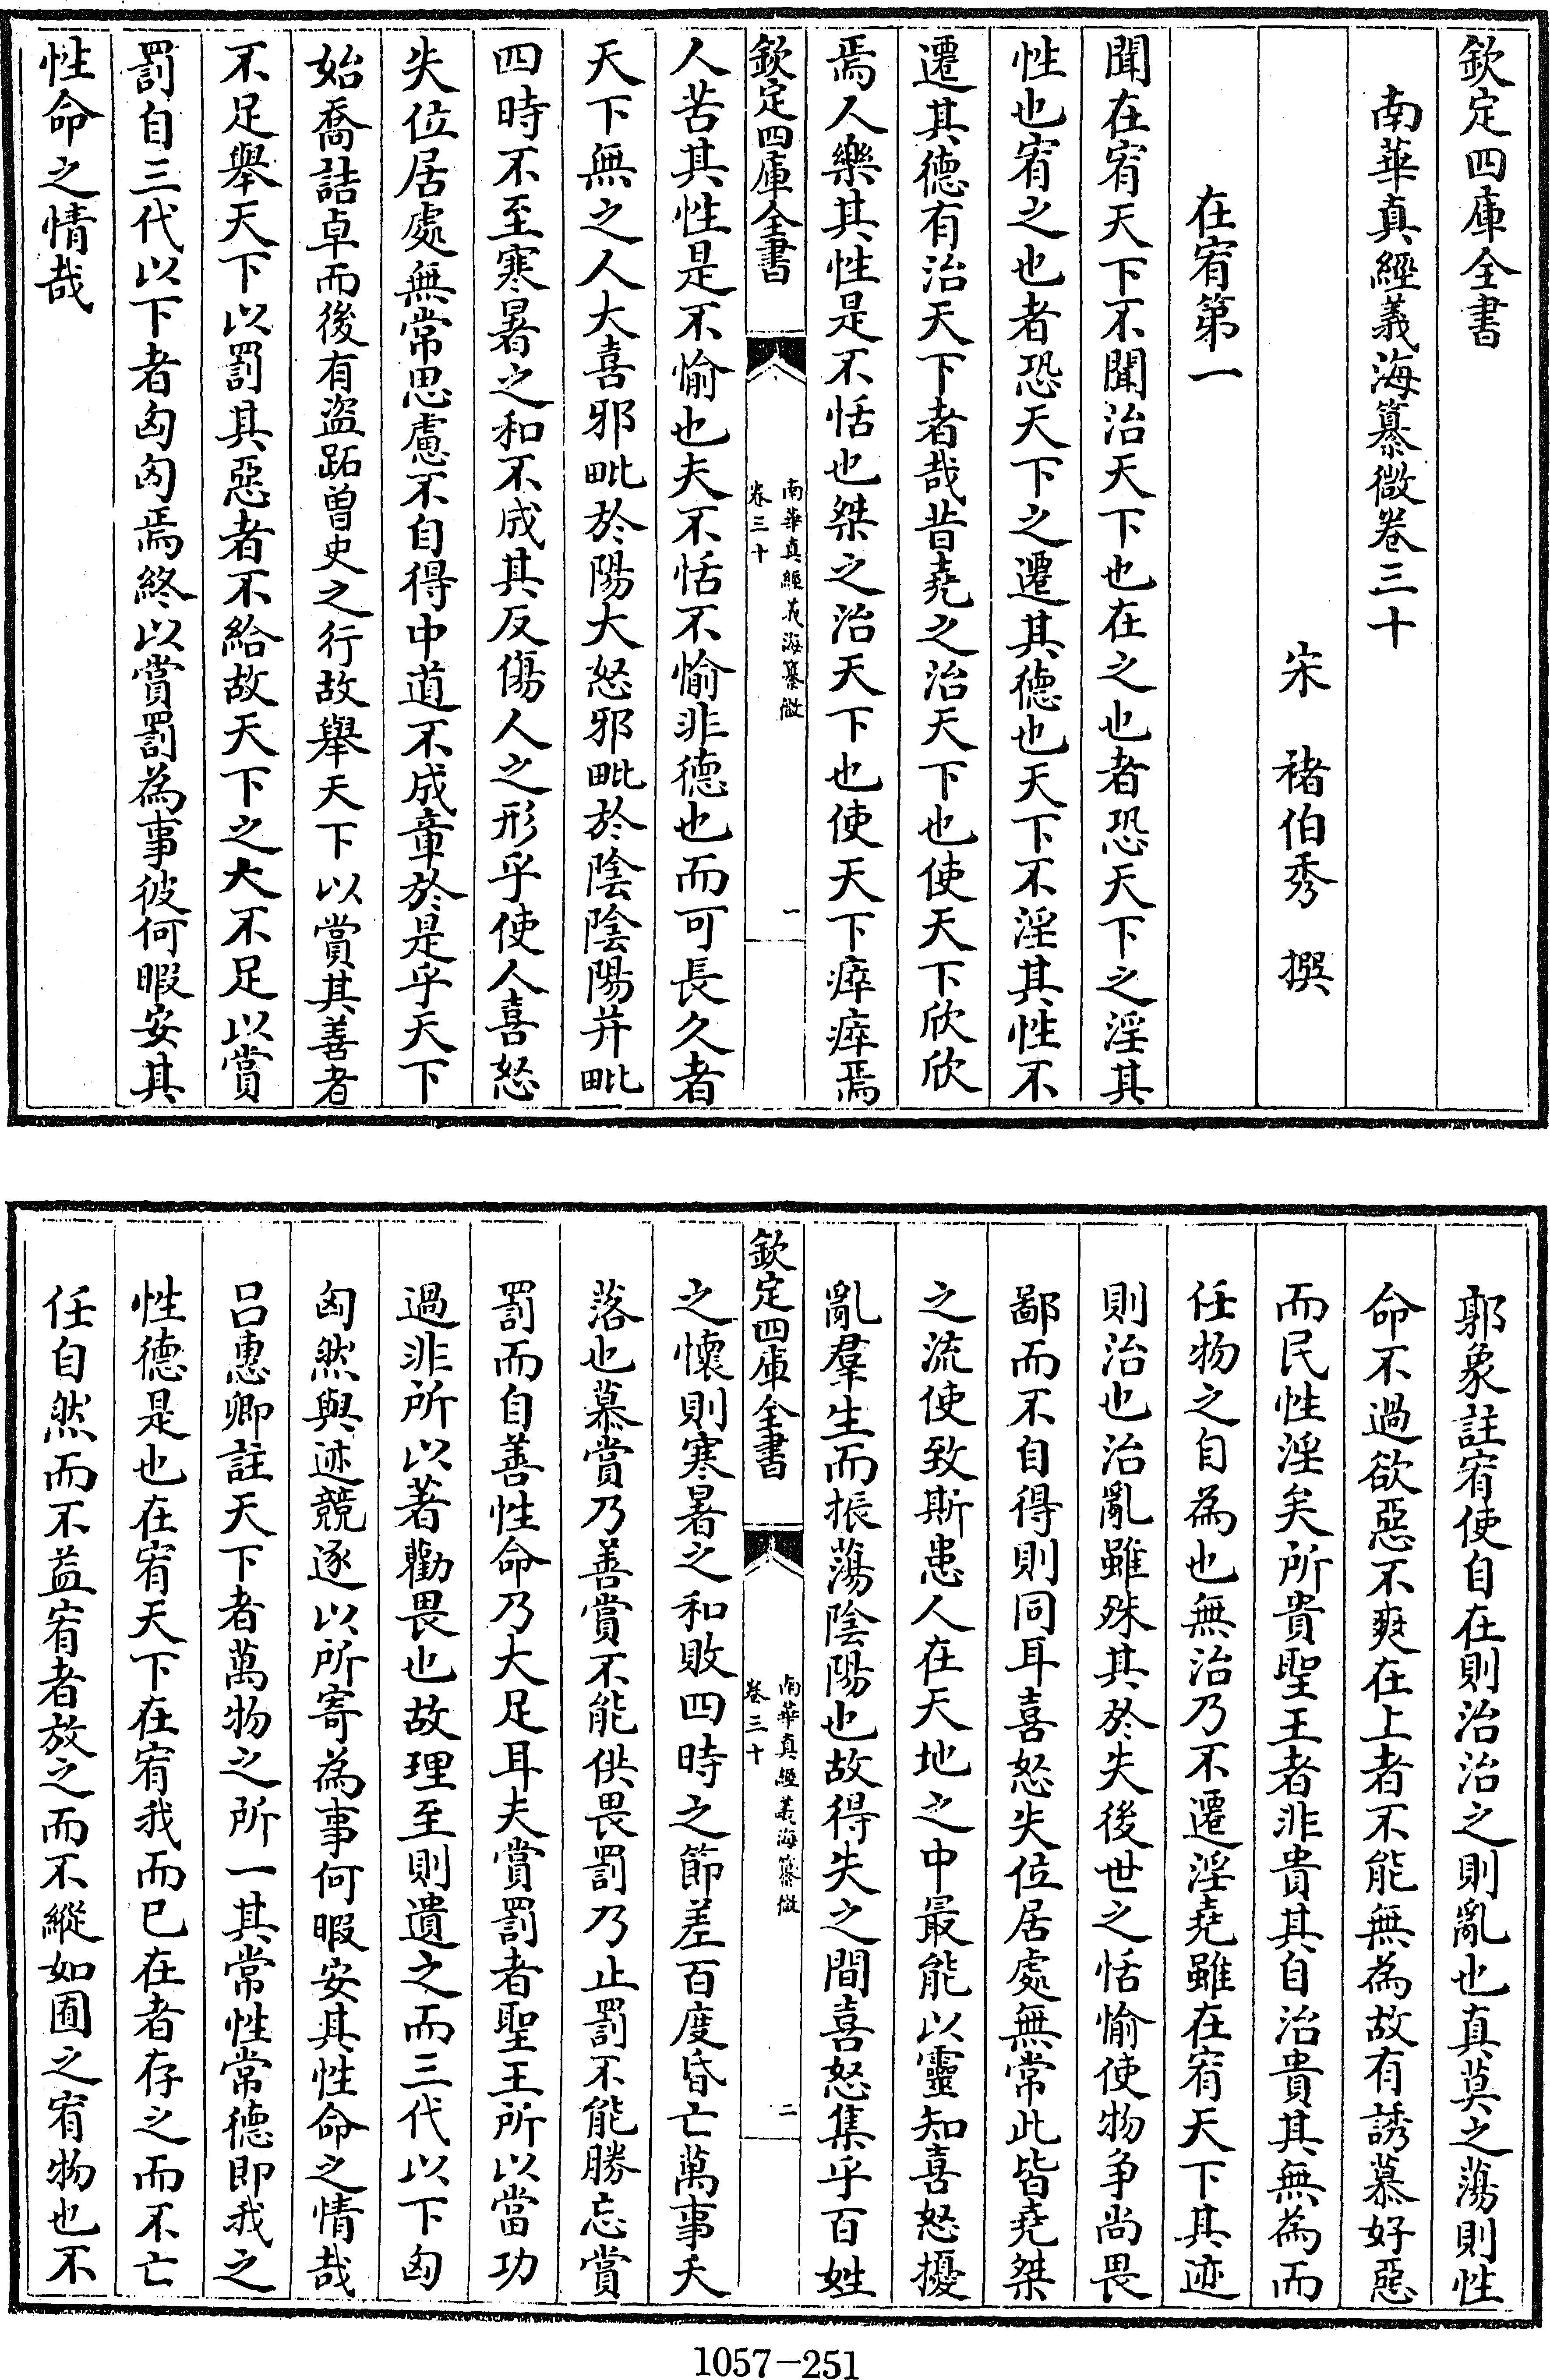 欽定四庫全書
南華真經義海纂微卷三十
宋　褚伯秀　撰
在宥第一
聞在宥天下不聞治天下也在之也者恐天下之淫其
性也宥之也者恐天下之遷其德也天下不淫其性不
遷其德有治天下者哉昔堯之治天下也使天下欣欣
焉人樂其性是不恬也桀之治天下也使天下瘁瘁焉
欽定四庫全書
南華真經義海纂微
卷三十
一
人苦其性是不愉也夫不恬不愉非德也而可長久者
天下無之人大喜邪毗於陽大怒邪毗於陰陰陽并毗
四時不至寒暑之和不成其反傷人之形乎使人喜怒
失位居處無常思慮不自得中道不成章於是乎天下
始喬詰卓而後有盜跖曽史之行故舉天下以賞其善者
不足舉天下以罰其惡者不給故天下之大不足以賞
罰自三代以下者匈匈焉終以賞罰為事彼何暇安其
性命之情哉
郭象註宥使自在則治治之則亂也真莫之蕩則性
命不過欲惡不爽在上者不能無為故有誘慕好惡
而民性淫矣所貴聖王者非貴其自治貴其無為而
任物之自為也無治乃不遷淫堯雖在宥天下其迹
則治也治亂雖殊其於失後世之恬愉使物争尚畏
鄙而不自得則同耳喜怒失位居處無常此皆堯桀
之流使致斯患人在天地之中最能以靈知喜怒擾
亂羣生而振蕩陰陽也故得失之間喜怒集乎百姓
欽定四庫全書
南華真經義海纂微
卷三十
二
之懷則寒暑之和敗四時之節差百度昏亡萬事夭
落也慕賞乃善賞不能供畏罰乃止罰不能勝忘賞
罰而自善性命乃大足耳夫賞罰者聖王所以當功
過非所以著勸畏也故理至則遺之而三代以下匈
匈然與迹競逐以所寄為事何暇安其性命之情哉
吕惠卿註天下者萬物之所一其常性常德即我之
性德是也在宥天下在宥我而已在者存之而不亡
任自然而不益宥者放之而不縱如囿之宥物也不
1057-251